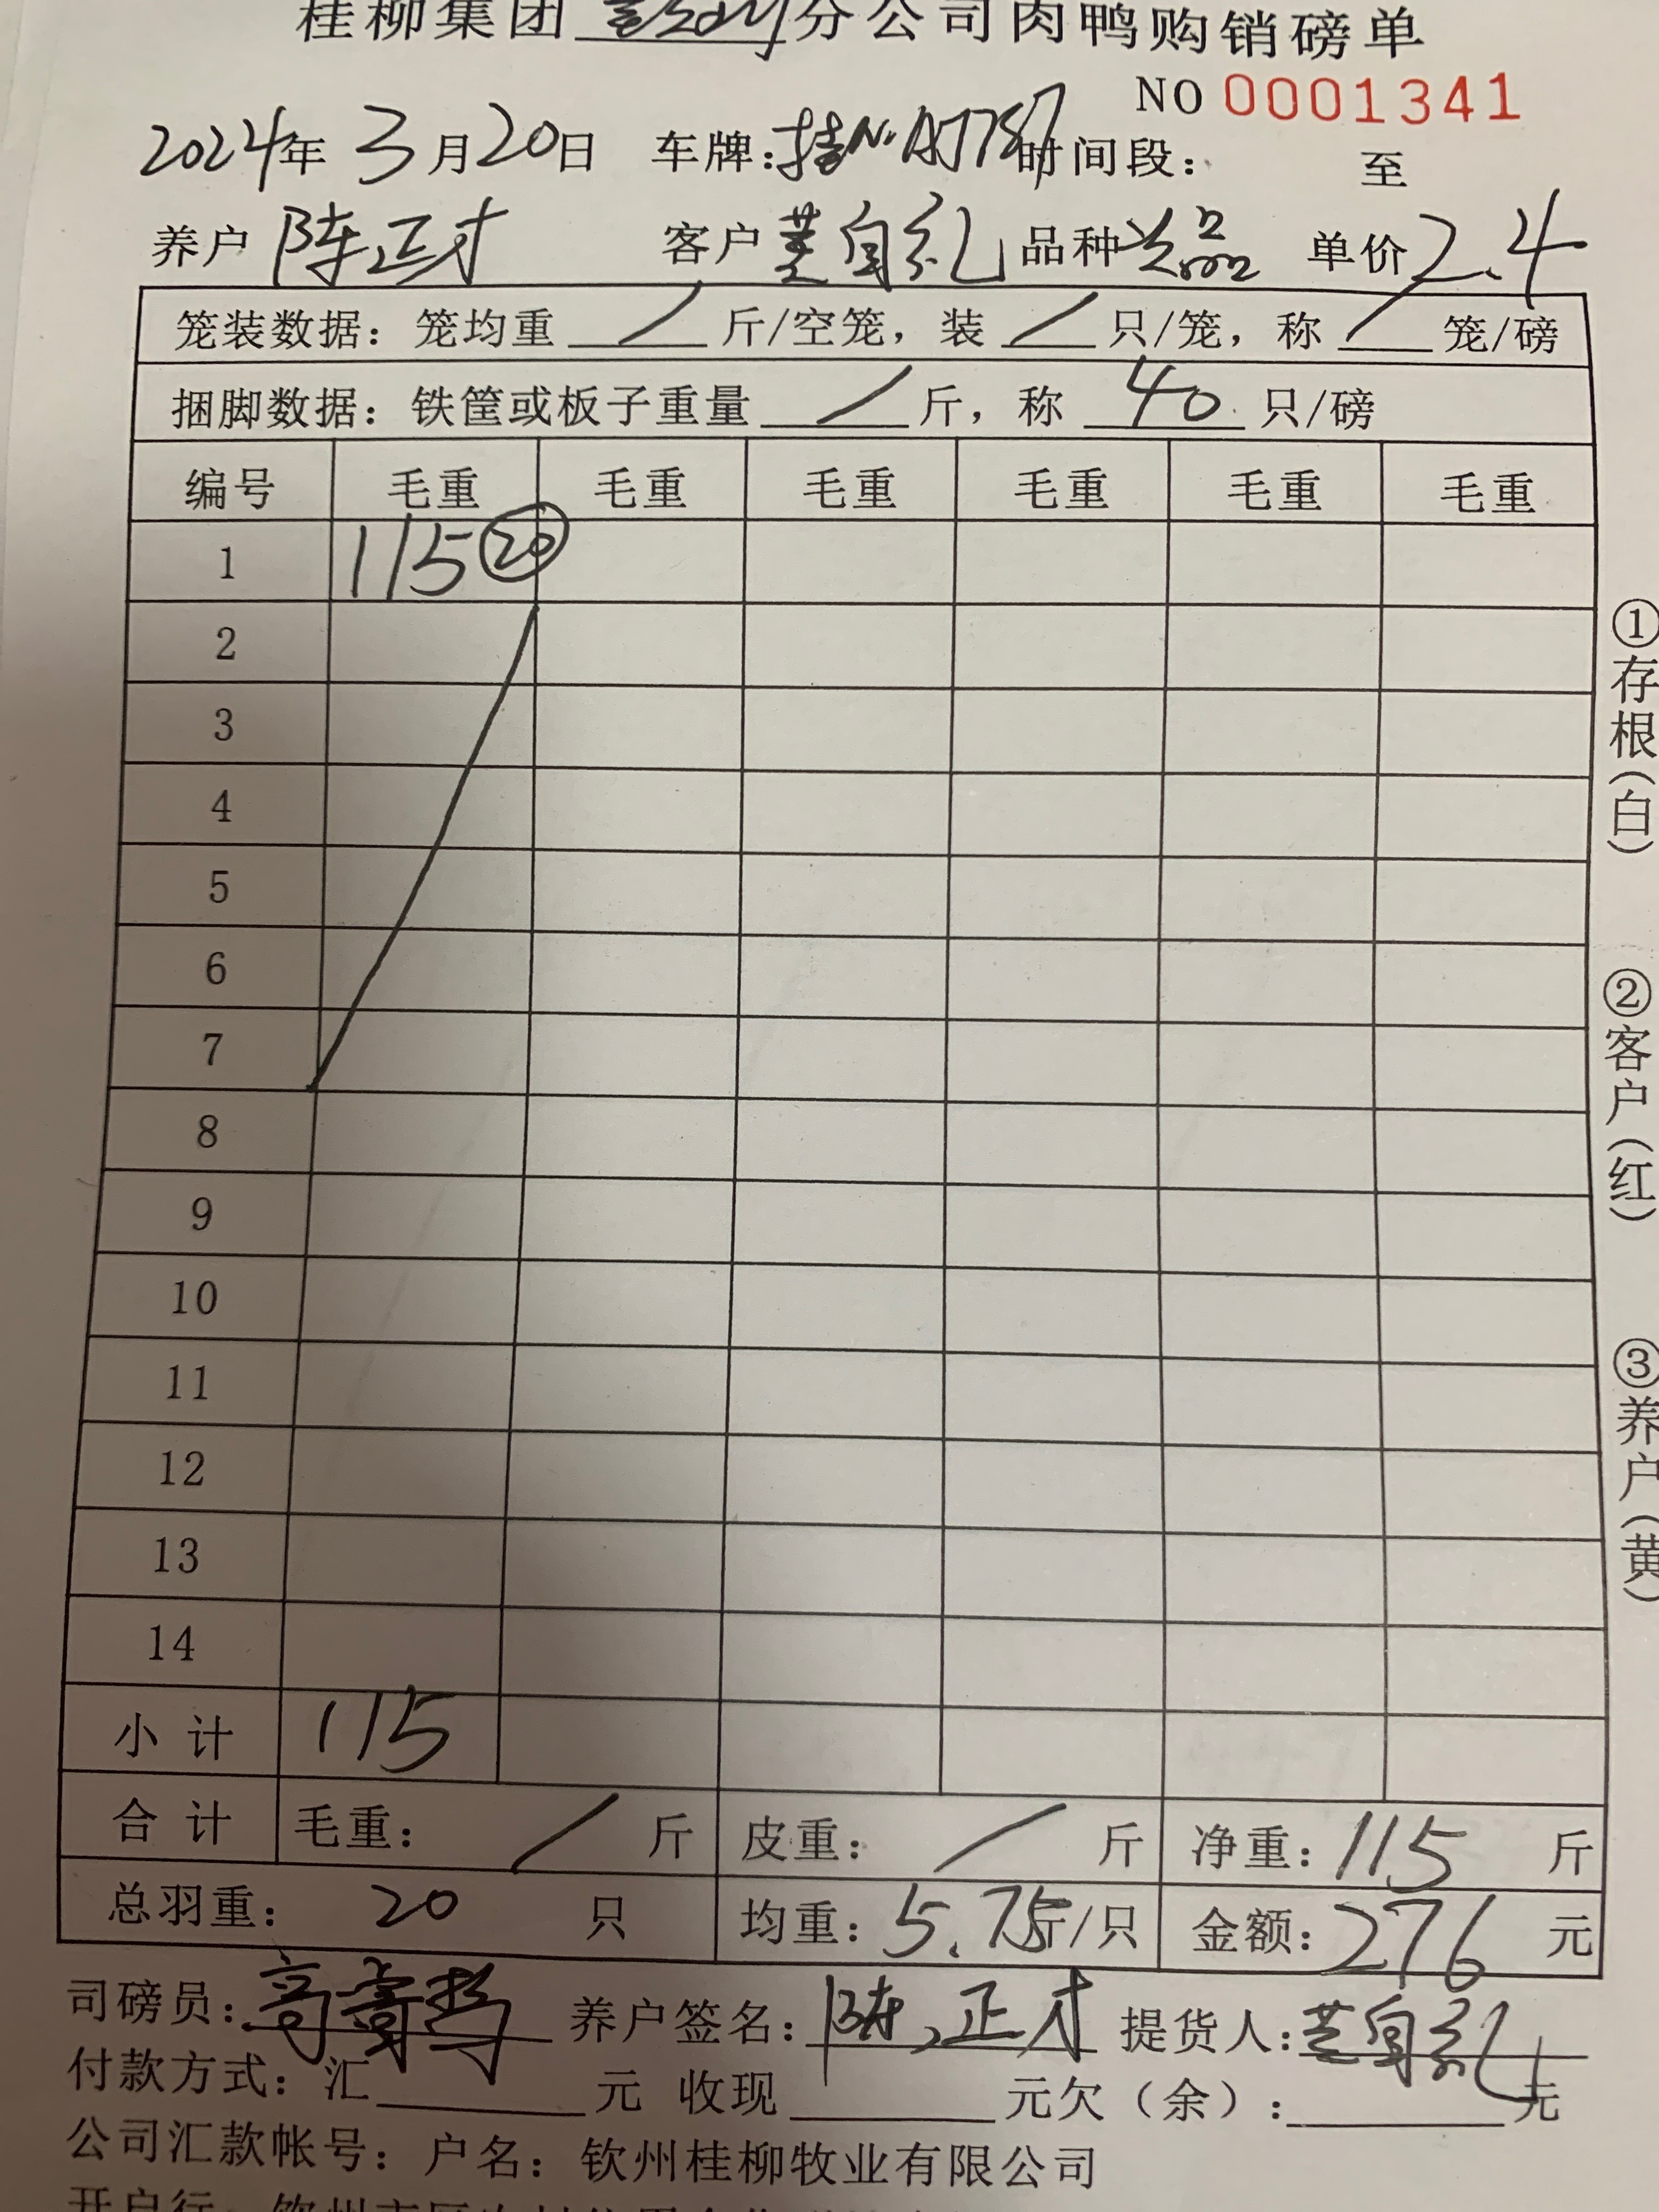 桂柳集团 分公司肉鸭购销磅单
NO 0001341
2024年 3月20日 车牌: 时间段: 至
养户 陈正才 客户 自 品种 品 单价 2.4
笼装数据: 笼均重 / 斤/空笼, 装 / 只/笼, 称 / 笼/磅
捆脚数据: 铁筐或板子重量 / 斤, 称 40 只/磅
编号 毛重 毛重 毛重 毛重 毛重 毛重
1 115 ⑳
2
3
4
5
6
7
8
9
10
11
12
13
14
小计 115
合计 毛重: / 斤 皮重: / 斤 净重: 115 斤
总羽重: 20 只 均重: 5.75斤/只 金额: 276 元
司磅员: 养户签名: 陈正才 提货人:
付款方式: 汇 元 收现 元欠(余): 元
公司汇款帐号: 户名: 钦州桂柳牧业有限公司
①存根(白)
②客户(红)
③养户(黄)